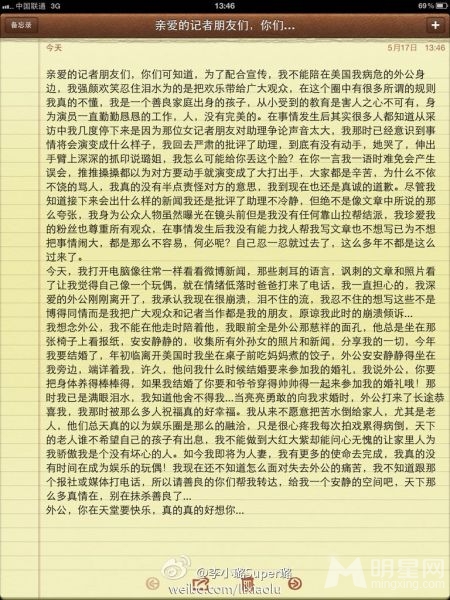 中国联通 3G
13:46
69%
备忘录
亲爱的记者朋友们，你们...
+
今天
5月17日 13:46
亲爱的记者朋友们，你们可知道，为了配合宣传，我不能陪在美国我病危的外公身
边，我强颜欢笑忍住泪水为的是把欢乐带给广大观众，在这个圈中有很多所谓的规则
我真的不懂，我是一个善良家庭出身的孩子，从小受到的教育是害人之心不可有，身
为演员一直勤勤恳恳的工作，人，没有完美的。在事情发生后其实很多人都知道从采
访中我几度停下来是因为那位女记者朋友对助理争论声音太大，我那时已经意识到事
情将会演变成什么样子，我回去严肃的批评了助理，到底有没有动手，她哭了，伸出
手臂上深深的抓印说璐姐，我怎么可能给你丢这个脸？在你一言我一语时难免会产生
误会，推推搡搡都以为对方要动手就演变成了大打出手，大家都是辛苦，为什么不依
不饶的骂人，我真的没有半点责怪对方的意思，我到现在也还是真诚的道歉。尽管我
知道接下来会出什么样的新闻我还是批评了助理不冷静，但绝不是像文章中所说的那
么夸张，我身为公众人物虽然曝光在镜头前但是我没有任何靠山拉帮结派，我珍爱我
的粉丝也尊重所有观众，在事情发生后我没有能力找人帮我写文章也不想写已为不想
把事情闹大，都是那么不容易，何必呢？自己忍一忍就过去了，这么多年不都是这么
过来了。
今天，我打开电脑像往常一样看看微博新闻，那些刺耳的语言，讽刺的文章和照片看
了让我觉得自己像一个玩偶，就在情绪低落时爸爸打来了电话，我一直担心的，我深
爱的外公刚刚离开了，我承认我现在很崩溃，泪不住的流，我忍不住的想写这些不是
博得同情而是我把广大观众和记者当作都是我的朋友，原谅我此时的崩溃倾诉...
我想念外公，我不能在他走时陪着他，我眼前全是外公那慈祥的面孔，他总是坐在那
张椅子上看报纸，安安静静的，收集所有外孙女的照片和新闻，分享我的一切，今年
我要结婚了，年初临离开美国时我坐在桌子前吃妈妈煮的饺子，外公安安静静得坐在
我旁边，端详着我，许久，他问我什么时候结婚要来参加我的婚礼，我说外公，你要
把身体养得棒棒得，如果我结婚了你要和爷爷穿得帅帅得一起来参加我的婚礼哦！那
时我已是满眼泪水，我知道他舍不得我...当亮亮勇敢的向我求婚时，外公打来了长途恭
喜我，我那时被那么多人祝福真的好幸福。我从来不愿意把苦水倒给家人，尤其是老
人，他们总天真的以为娱乐圈是那么的融洽，只是很心疼我每次拍戏累得病倒，天下
的老人谁不希望自己的孩子有出息，我不能做到大红大紫却能问心无愧的让家里人为
我骄傲我是个没有坏心的人。如今我即将为人妻，我有更多的使命去完成，我真的没
有时间在成为娱乐的玩偶！我现在还不知道怎么面对失去外公的痛苦，我不知道跟那
个报社或媒体打电话，所以请善良的你们帮我转达，给我一个安静的空间吧，天下那
么多真情在，别在抹杀善良了...
外公，你在天堂要快乐，真的真的好想你...
@李小璐Super璐
weibo.com/lixiaolu
明星网
mingxing.com